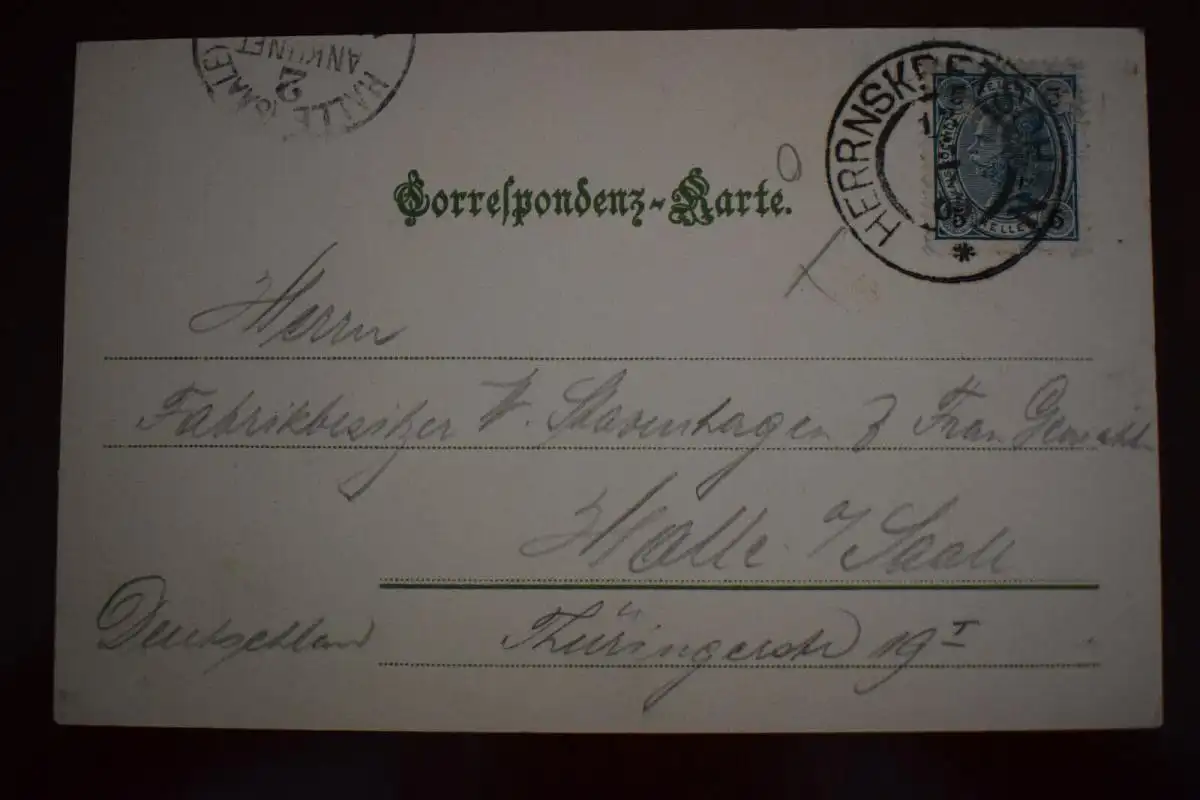 HALLE (SAALE)
ANKUNFT
2
HERRNSKRETSCHEN
5 5
HELLER
Correspondenz-Karte.
Herrn
Fabrikbesitzer W. Stavenhagen & Frau Gemahl
Halle a/Saale
Deutschland Thüringerstr 19 I